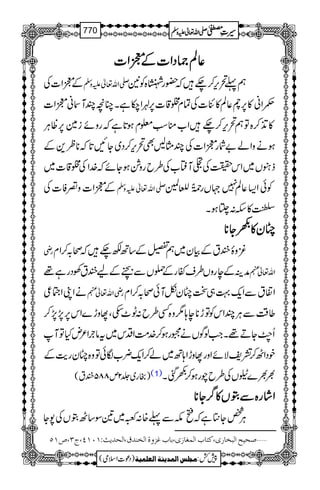 سیرتِ مصطفیٰ صلی اللہ تعالیٰ علیہ وسلم 770
عالم جمادات کے معجزات
ہم پہلے تحریر کر چکے ہیں کہ حضور شہنشاہ کونین صلی اللہ تعالیٰ علیہ وسلم کے معجزات کی
حکمرانی کا پرچم عالم کائنات کی تمام مخلوقات پر لہرا چکا ہے۔ چنانچہ چند آسمانی معجزات
کا تذکرہ تو ہم تحریر کر چکے ہیں اب مناسب معلوم ہوتا ہے کہ روئے زمین پر ظاہر
ہونے والے بے شمار معجزات کی چند مثالیں بھی تحریر کر دی جائیں تا کہ ناظرین کے
ذہنوں میں اس حقیقت کی تجلی آفتاب کی طرح روشن ہو جائے کہ خدا کی مخلوقات میں
کوئی ایسا عالم نہیں جہاں رحمۃ للعالمین صلی اللہ تعالیٰ علیہ وسلم کے معجزات و تصرفات کی
سلطنت کا سکہ نہ چلتا ہو۔
چٹان کا بکھر جانا
غزوۂ خندق کے بیان میں ہم تفصیل کے ساتھ لکھ چکے ہیں کہ صحابہ کرام رضی
اللہ تعالیٰ عنہم مدینہ کے چاروں طرف کفار کے حملوں سے بچنے کے لیے خندق کھود رہے تھے
اتفاق سے ایک بہت ہی سخت چٹان نکل آئی صحابہ کرام رضی اللہ تعالیٰ عنہم نے اپنی اجتماعی
طاقت سے ہر چند اس کو توڑنا چاہا مگر وہ کسی طرح نہ ٹوٹ سکی، پھاوڑے اس پر پڑ پڑ کر
اُچٹ جاتے تھے۔ جب لوگوں نے مجبور ہو کر خدمت اقدس میں یہ ماجرا عرض کیا تو آپ
خود اٹھ کر تشریف لائے اور پھاوڑا ہاتھ میں لے کر ایک ضرب لگائی تو وہ چٹان ریت کے
بھربھرے ٹیلوں کی طرح چور چور ہو کر بکھر گئی۔ (1) (بخاری جلد۲ ص۵۸۸ خندق)
اشارہ سے بتوں کا گر جانا
ہر شخص جانتا ہے کہ فتح مکہ سے پہلے خانہ کعبہ میں تین سو ساٹھ بتوں کی پوجا پوجا
صحیح البخاری، کتاب المغازی، باب غزوۃ الخندق، الحدیث: ۴۱۰۱، ج۳، ص۵۱
پیش کش: مجلس المدینۃ العلمیۃ (دعوتِ اسلامی)